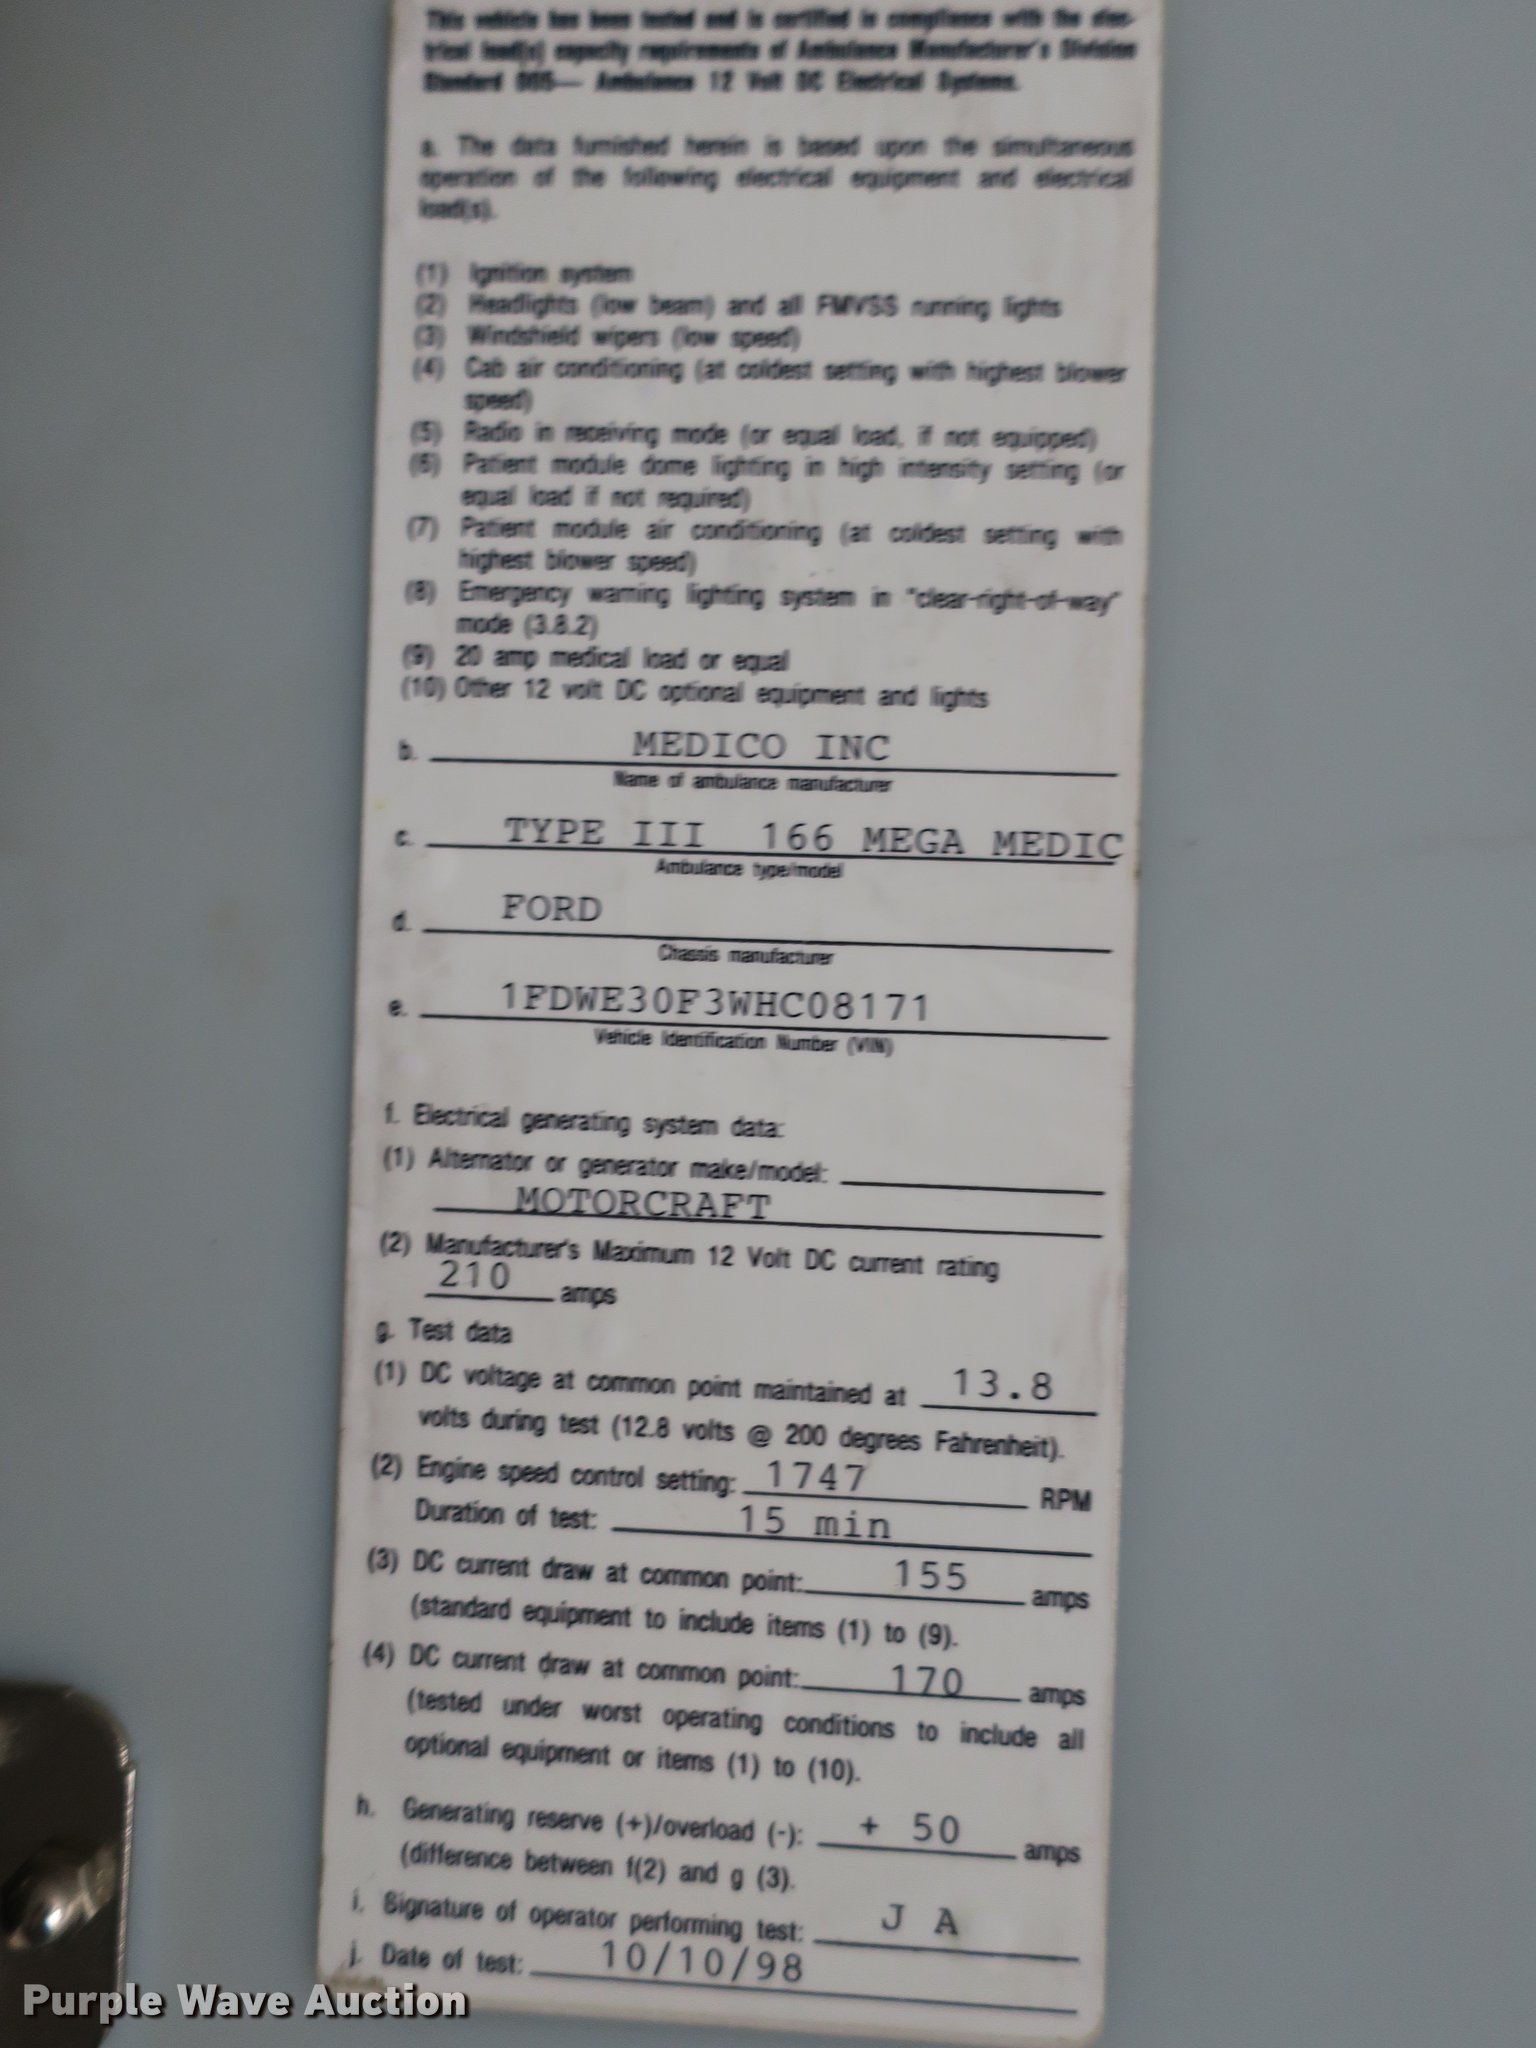 This vehicle has been tested and is certified in compliance with the elec-
trical load(s) capacity requirements of Ambulance Manufacturer's Division
Standard 005— Ambulance 12 Volt DC Electrical Systems.
a. The data furnished herein is based upon the simultaneous
operation of the following electrical equipment and electrical
load(s).
(1) Ignition system
(2) Headlights (low beam) and all FMVSS running lights
(3) Windshield wipers (low speed)
(4) Cab air conditioning (at coldest setting with highest blower
speed)
(5) Radio in receiving mode (or equal load, if not equipped)
(6) Patient module dome lighting in high intensity setting (or
equal load if not required)
(7) Patient module air conditioning (at coldest setting with
highest blower speed)
(8) Emergency warning lighting system in "clear-right-of-way"
mode (3.8.2)
(9) 20 amp medical load or equal
(10) Other 12 volt DC optional equipment and lights
b. MEDICO INC
Name of ambulance manufacturer
c. TYPE III 166 MEGA MEDIC
Ambulance type/model
d. FORD
Chassis manufacturer
e. 1FDWE30F3WHC08171
Vehicle Identification Number (VIN)
f. Electrical generating system data:
(1) Alternator or generator make/model:
MOTORCRAFT
(2) Manufacturer's Maximum 12 Volt DC current rating
210 amps
g. Test data
(1) DC voltage at common point maintained at 13.8
volts during test (12.8 volts @ 200 degrees Fahrenheit).
(2) Engine speed control setting: 1747 RPM
Duration of test: 15 min
(3) DC current draw at common point: 155 amps
(standard equipment to include items (1) to (9).
(4) DC current draw at common point: 170 amps
(tested under worst operating conditions to include all
optional equipment or items (1) to (10).
h. Generating reserve (+)/overload (-): + 50 amps
(difference between f(2) and g (3).
i. Signature of operator performing test: J A
j. Date of test: 10/10/98
Purple Wave Auction